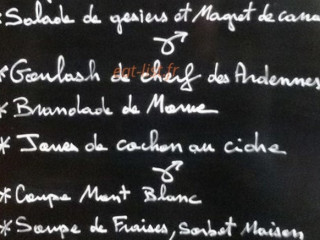 : Salade de gesiers et Magret de cana
* Goulash de cherf des Ardennes
eat-list.fr
* Brandade de Morue
* Joues de cochon au cidre
* Coupe Mont Blanc
* Soupe de Fraises, Sorbet Maison